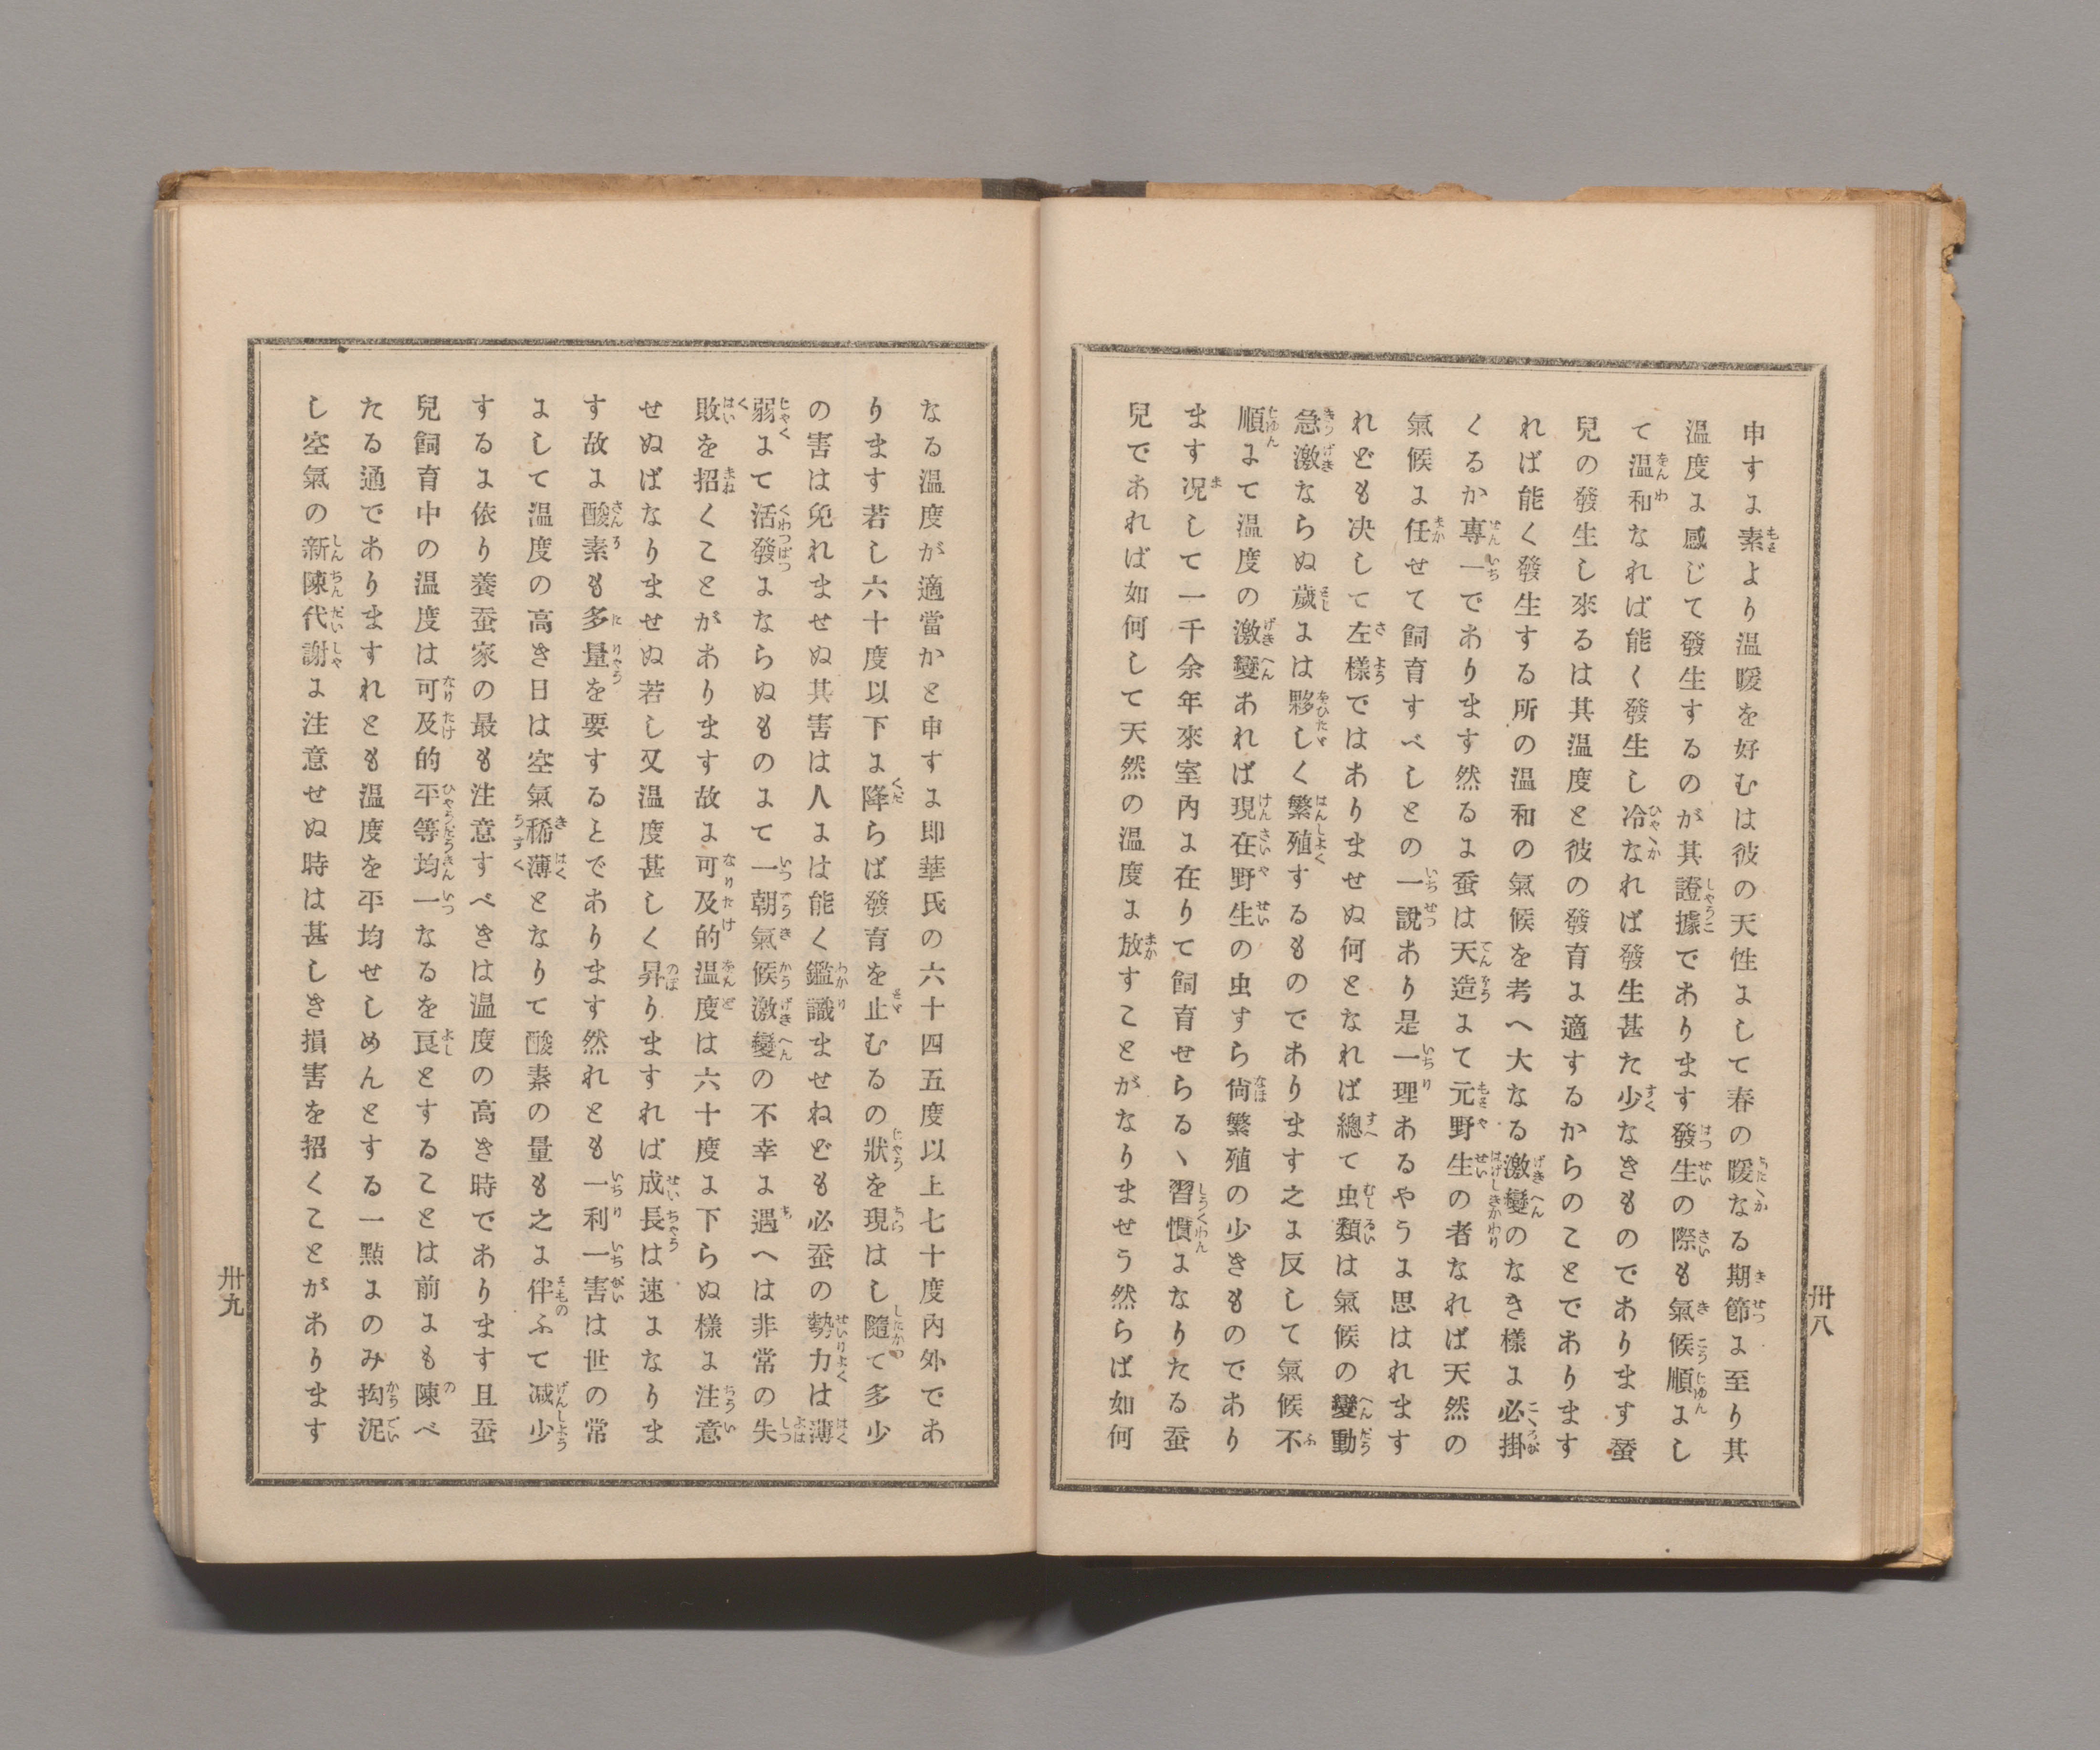 申すに素より温暖を好むは彼の天性にして春の暖なる期節に至り其
温度に感じて發生するのが其證據であります發生の際も氣候順にし
て温和なれば能く發生し冷なれば發生甚た少なきものであります蚕
兒の發生し來るは其温度と彼の發育に適するからのことであります
れば能く發生する所の温和の氣候を考へ大なる激變のなき樣に必掛
くるか專一であります然るに蚕は天造にて元野生の者なれば天然の
氣候に任せて飼育すべしとの一說あり是一理あるやうに思はれます
れども决して左樣ではありませぬ何となれば總て虫類は氣候の變動
急激ならぬ歲には夥しく繁殖するものであります之に反して氣候不
順にて温度の激變あれば現在野生の虫すら尙繁殖の少きものであり
ます况して一千余年來室內に在りて飼育せらるヽ習慣になりたる蚕
兒であれば如何して天然の温度に放すことがなりませう然らば如何
卅八
なる温度が適當かと申すに即華氏の六十四五度以上七十度內外であ
ります若し六十度以下に降らば發育を止むるの狀を現はし隨て多少
の害は免れませぬ其害は人には能く鑑識ませねども必蚕の勢力は薄
弱にて活發にならぬものにて一朝氣候激變の不幸に遇へは非常の失
敗を招くことがあります故に可及的温度は六十度に下らぬ樣に注意
せぬばなりませぬ若し又温度甚しく昇りますれば成長は速になりま
す故に酸素も多量を要するとであります然れとも一利一害は世の常
にして温度の高き日は空氣稀薄となりて酸素の量も之に伴ふて减少
するに依り養蚕家の最も注意すべきは温度の高き時であります且蚕
兒飼育中の温度は可及的平等均一なるを良とすることは前にも陳べ
たる通でありますれとも温度を平均せしめんとする一點にのみ拘泥
し空氣の新陳代謝に注意せぬ時は甚しき損害を招くことがあります
卅九